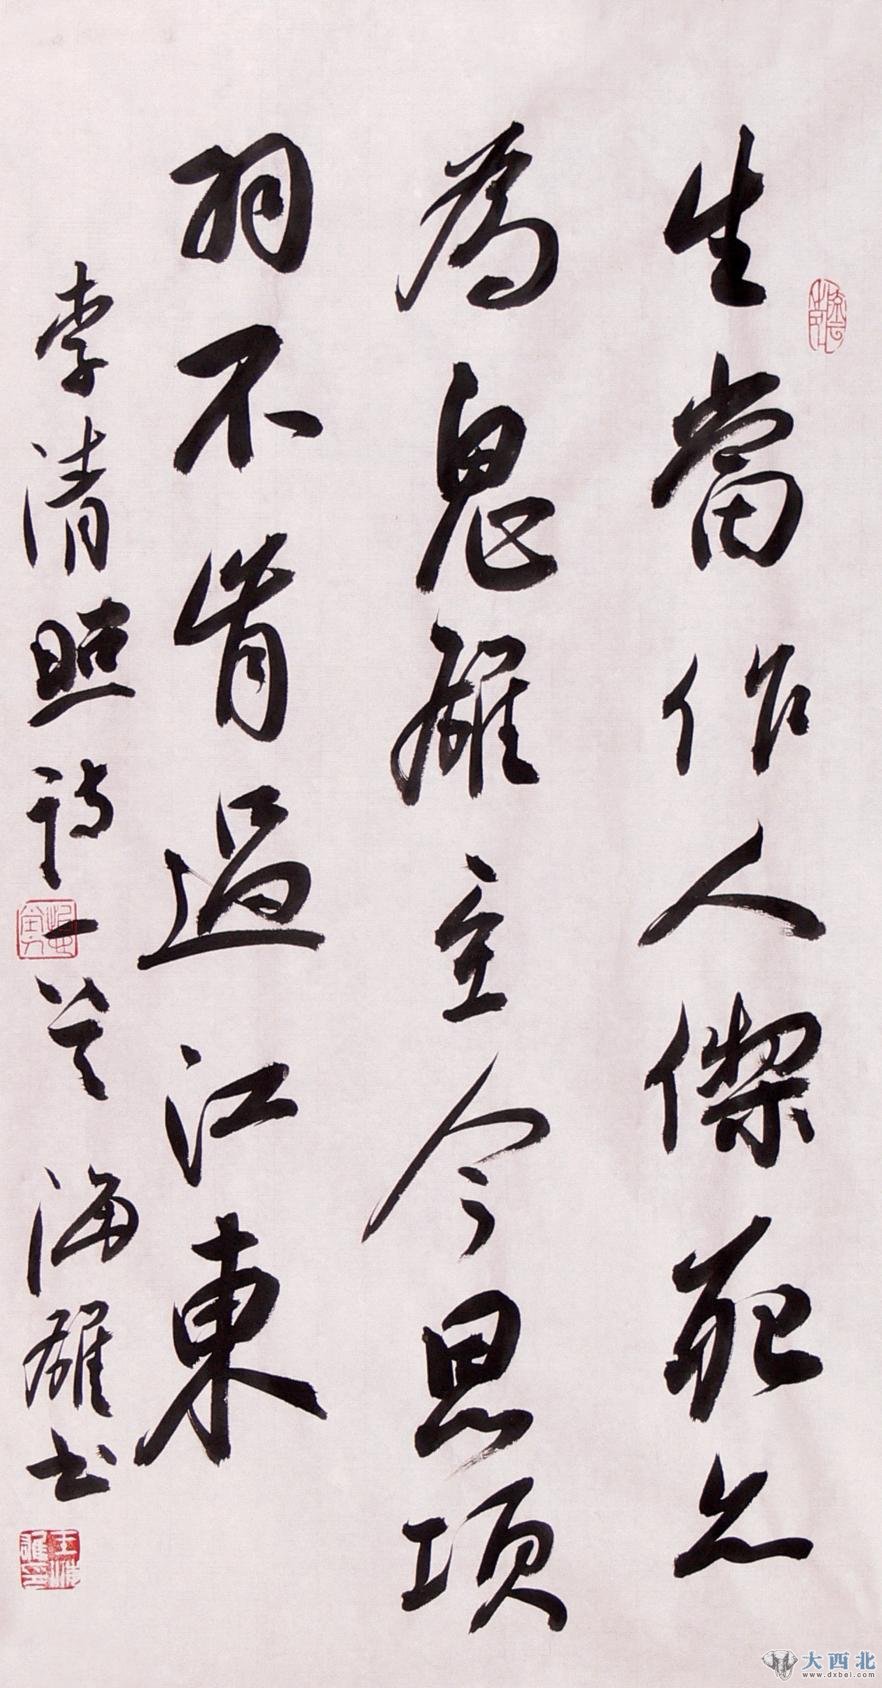 生當作人傑死亦
為鬼雄至今思項
羽不肯過江東
李清照詩一首 海雄書
王海雄印
大西北
www.dxbei.com